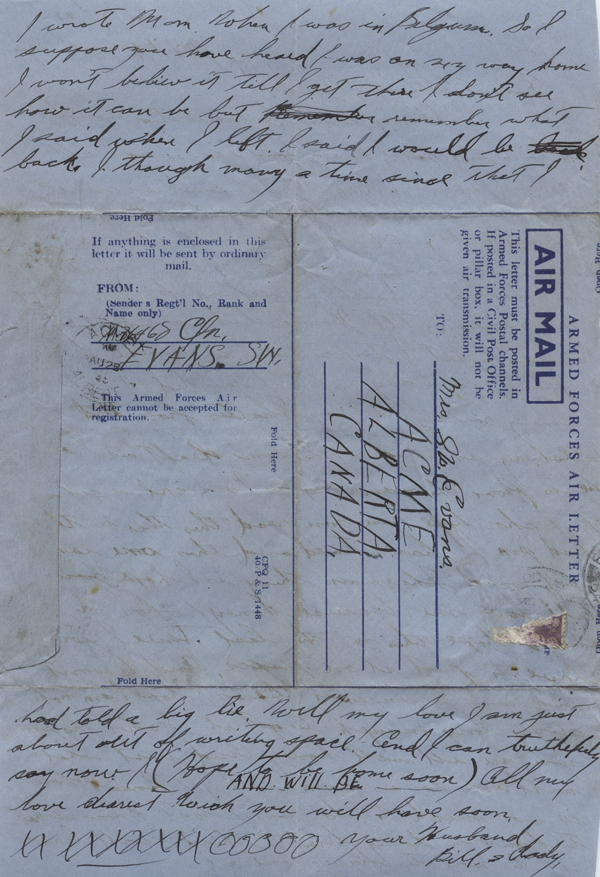 I wrote Mom. When I was in Belgum. So I
suppose you have heard I was on my way home
I won't believ it till I get there I don't see
how it can be but remember what
I said when I left. I said I would be
back. I though many a time since that I
Fold Here
If anything is enclosed in this
letter it will be sent by ordinary
mail.
FROM:
(Sender s Regt'l No., Rank and
Name only)
Cfn.
EVANS. SW.
This Armed Forces Air
Letter cannot be accepted for
registration.
Fold Here
CFQ 11
40 P & S/1448
Fold Here
ARMED FORCES AIR LETTER
AIR MAIL
This letter must be posted in
Armed Forces Postal channels.
If posted in a Civil Post Office
or pillar box, it will not be
given air transmission.
TO:
Mrs. Evans,
ACME
ALBERTA,
CANADA,
had told a big lie. Well my love I am just
about out of writing space. And I can truthefuly
say now! (Hope to be home soon) All my
AND WILL BE
love dearest wich you will have soon.
XX XXXXXXX OOOOO Your Husband
Bill. & Dady,